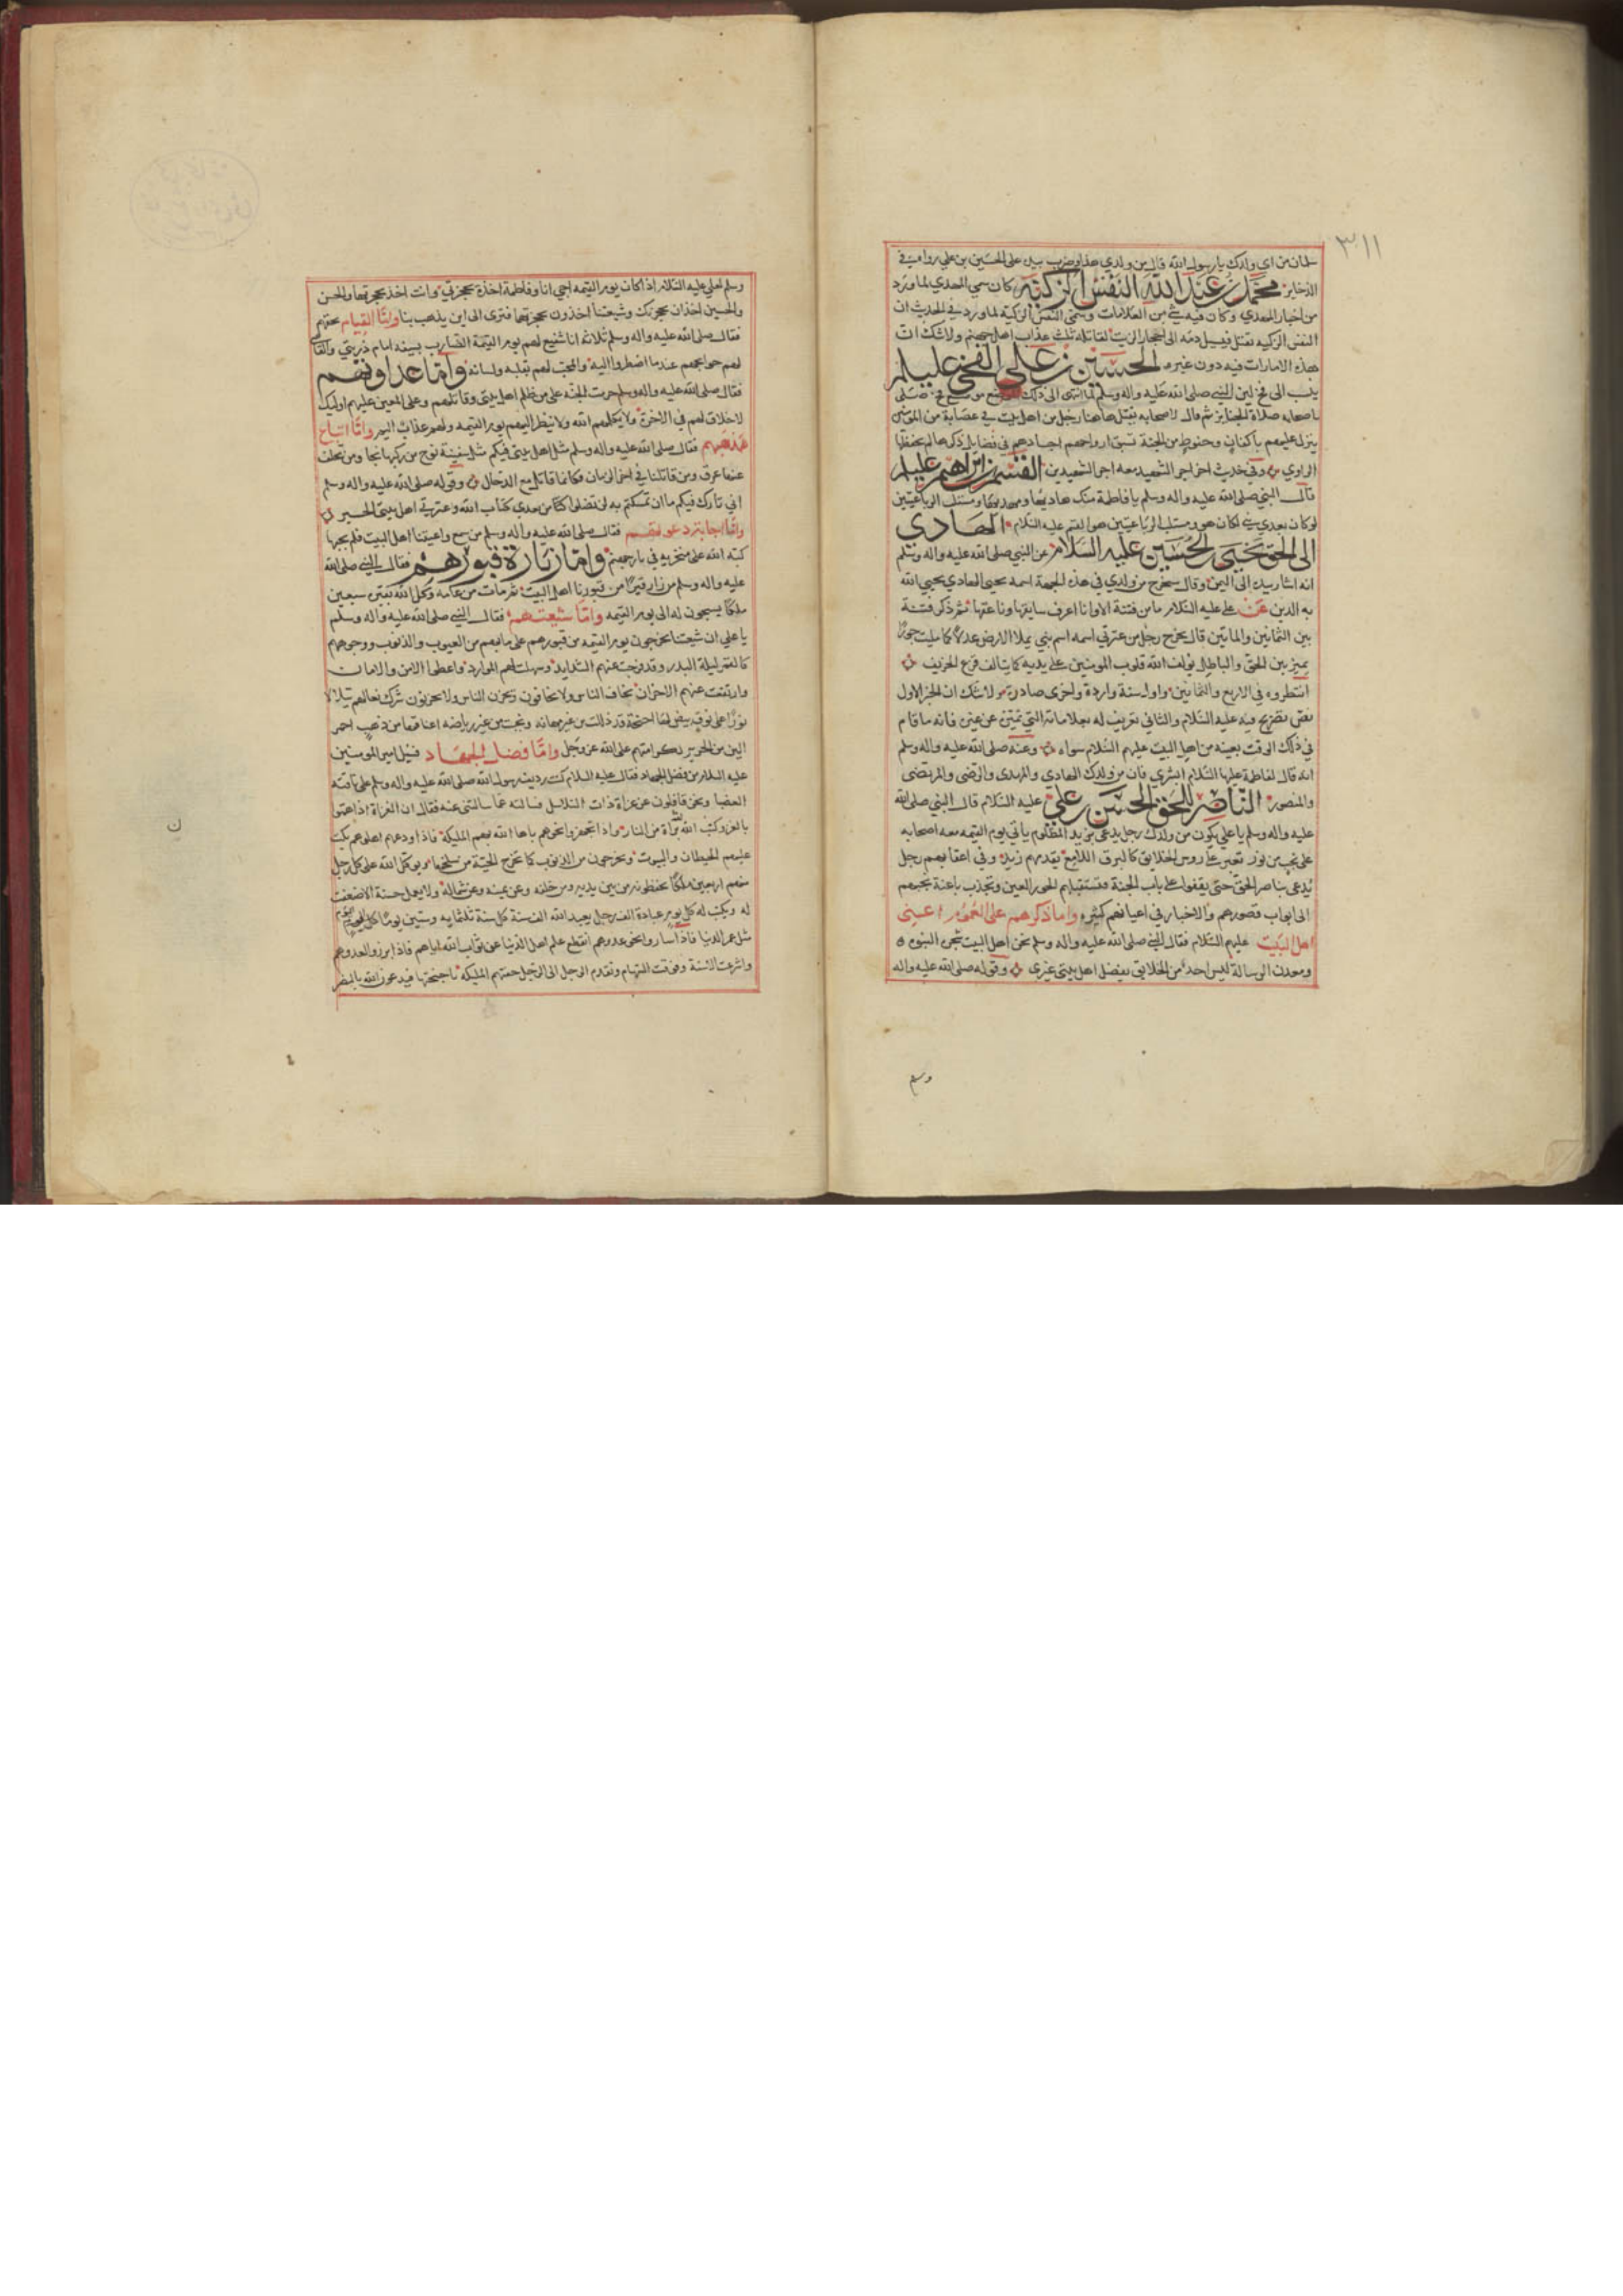 ٣١١
سلمان من اي ولدك يا رسول الله قال من ولدي هذا وضرب بيده على الحسين بن علي رواه في
الذخاير محمد بن عبد الله النفس الزكية كان سمي المهدي لما ورد
من اخبار المهدي وكان فيه شي من العلامات وسمي النفس الزكية لما ورد في الحديث ان
النفس الزكيه تقتل فيسيل دمه الى احجار الزيت لقاتله ثلث عذاب اهل جهنم ولا شك ان
هذه الامارات فيه دون غيره الحسين بن علي الفخي عليلم
ينسب الى فخ لان النبي صلى الله عليه واله وسلم لما انتهى الى ذلك الموضع من فخ صلى
باصحابه صلاة الجنايز ثم قال لاصحابه يقتل هاهنا رجل من اهل بيتي في عصابة من المومنين
ينزل عليهم باكفان وحنوط من الجنة تسبق ارواحهم اجسادهم في فضايل ذكرها لم يحفظها
الراوي وفي حديث اخر اجر الشهيد معه اجر الشهيدين القسم بن ابراهيم عليلم
قال النبي صلى الله عليه واله وسلم يا فاطمة منك هاديها ومهديها ومستلب الرباعيتين
لو كان بعدي نبي لكان هو ومستلب الرباعيتين هو القسم عليه السلام الهادي
الى الحق يحيى بن الحسين عليه السلام عن النبي صلى الله عليه واله وسلم
انه اشار بيده الى اليمن وقال سيخرج من ولدي في هذه الجهة اسمه يحيى الهادي يحيي الله
به الدين عن علي عليه السلام ما من فتنة الا وانا اعرف سايقها وناعقها ثم ذكر فتنة
بين الثمانين والماتين قال يخرج رجل من عترتي اسمه اسم نبي يملا الارض عدلا كما مليت جورا
يميز بين الحق والباطل يولف الله قلوب المومنين على يديه كما يتالف قزع الخريف
انتظروه في الاربع والثمانين واول سنة واردة واخرى صادرة ولا شك ان الخبر الاول
نص تصريح فيه عليه السلام والثاني تعريف له بعلاماته التي تميز عن غيره فانه ما قام
في ذلك الوقت بعينه من اهل البيت عليهم السلام سواه وعنه صلى الله عليه واله وسلم
انه قال لفاطمة عليها السلام ابشري فان من ولدك الهادي والمهدي والرضى والمرتضى
والمنصور الناصر للحق الحسن بن علي عليه السلام قال النبي صلى الله
عليه واله وسلم يا علي يكون من ولدك رجل يدعى بزيد المظلوم ياتي يوم القيمه معه اصحابه
على نجب من نور تعبر على روس الخلايق كالبرق اللامع يقدمهم زيد وفي اعقابهم رجل
يدعى بناصر الحق حتى يقفوا على باب الجنة فتستقبلهم الحور العين وتجذب باعنة نجبهم
الى ابواب قصورهم والاخبار في اعيانهم كثيره واما ذكرهم على العموم اعني
اهل البيت عليهم السلام فقال النبي صلى الله عليه واله وسلم نحن اهل البيت شجرة النبوه
ومعدن الرسالة ليس احد من الخلايق يفضل اهل بيتي غيري وقوله صلى الله عليه واله
وسلم
وسلم لعلي عليه السلام اذا كان يوم القيمه اجي انا وفاطمة اخذة بحجزتي وانت اخذ بحجزتها والحسن
والحسين اخذان بحجزتك وشيعتنا اخذون بحجزتهما فترى الى اين يذهب بنا واما القيام بحقهم
فقال صلى الله عليه واله وسلم ثلاثة انا شفيع لهم يوم القيمة الضارب بسيفه امام ذريتي والقاضي
لهم حوايجهم عندما اضطروا اليه والمحب لهم بقلبه ولسانه واما عداوتهم
فقال صلى الله عليه واله وسلم حرمت الجنة على من ظلم اهل بيتي وقاتلهم وعلى المعين عليهم اوليك
لا خلاق لهم في الاخرة ولا يكلمهم الله ولا ينظر اليهم يوم القيمه ولهم عذاب اليم واما اتباع
مذهبهم فقال صلى الله عليه واله وسلم مثل اهل بيتي فيكم مثل سفينة نوح من ركبها نجا ومن تخلف
عنها غرق ومن قاتلنا في اخر الزمان فكانما قاتل مع الدجال وقوله صلى الله عليه واله وسلم
اني تارك فيكم ما ان تمسكتم به لن تضلوا من بعدي كتاب الله وعترتي اهل بيتي الخبر
واما اجابة دعوتهم فقال صلى الله عليه واله وسلم من سمع واعيتنا اهل البيت فلم يجبها
كبه الله على منخريه في نار جهنم واما زيارة قبورهم فقال النبي صلى الله
عليه واله وسلم من زار قبرا من قبورنا اهل البيت ثم مات من عامه وكل الله بقبره سبعين
ملكا يسبحون له الى يوم القيمه واما شيعتهم فقال النبي صلى الله عليه واله وسلم
يا علي ان شيعتنا يخرجون يوم القيمه من قبورهم على ما بهم من العيوب والذنوب ووجوههم
كالقمر ليلة البدر وقد فرجت عنهم الشدايد وسهلت لهم الموارد واعطوا الامن والامان
وارتفعت عنهم الاحزان يخاف الناس ولا يخافون ويحزن الناس ولا يحزنون شرك نعالهم تتلالا
نورا على نوق بيض لها اجنحة قد ذللت من غير مهانه ونجبت من غير رياضه اعناقها من ذهب احمر
الين من الحرير لكرامتهم على الله عز وجل واما فضل الجهاد فسئل امير المومنين
عليه السلام عن فضل الجهاد فقال عليه السلام كنت رديف رسول الله صلى الله عليه واله وسلم على ناقته
العضبا ونحن قافلون من غزاة ذات السلاسل فسالته عما سالتني عنه فقال ان الغزاة اذا هموا
بالغزو كتب الله لهم براة من النار واذا تجهزوا لغزوهم باها الله بهم المليكة فاذا ودعهم اهلوهم بكت
عليهم الحيطان والبيوت ويخرجون من الذنوب كما تخرج الحية من سلخها ويوكل الله على كل رجل
منهم اربعين ملكا يحفظونه من بين يديه ومن خلفه وعن يمينه وعن شماله ولا يعمل حسنة الا ضعفت
له ويكتب له كل يوم عبادة الف رجل يعبد الله الف سنة كل سنة ثلثمايه وستين يوما كل يوم
مثل عمر الدنيا فاذا ساروا بحضرة عدوهم انقطع علم اهل الدنيا عن ثواب الله اياهم فاذا برزوا لعدوهم
واشرعت الاسنة وفوقت السهام وتقدم الرجل الى الرجل حفتهم المليكة باجنحتها فيدعون الله بالنصر